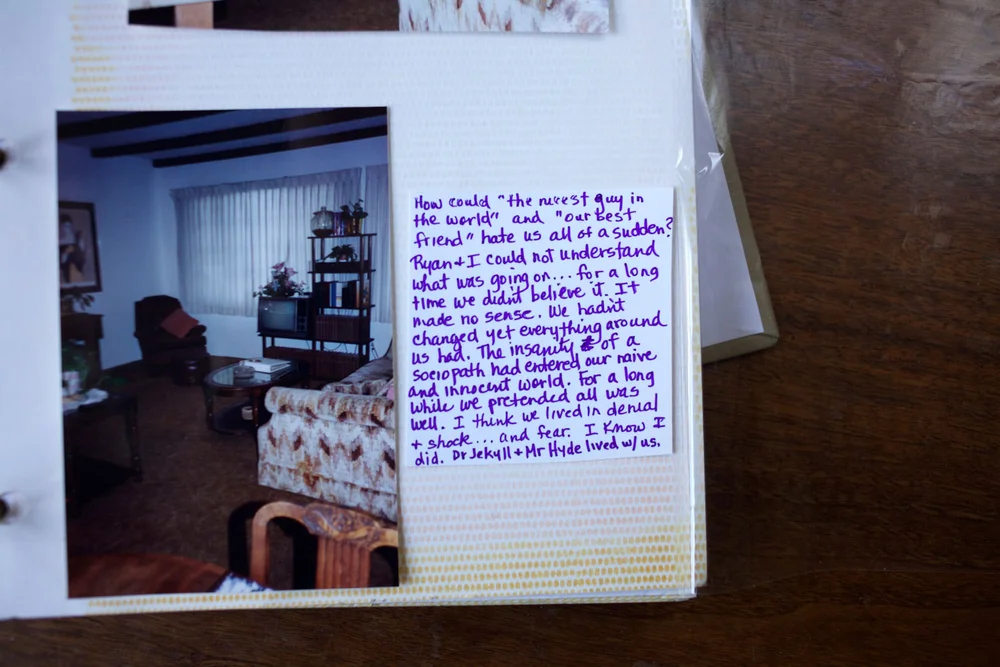 How could "the nicest guy in
the world" and "our best
friend" hate us all of a sudden?
Ryan + I could not understand
what was going on... for a long
time we didn't believe it. It
made no sense. We hadn't
changed yet everything around
us had. The insanity of a
sociopath had entered our naive
and innocent world. For a long
while we pretended all was
well. I think we lived in denial
+ shock... and fear. I know I
did. Dr Jekyll + Mr Hyde lived w/ us.